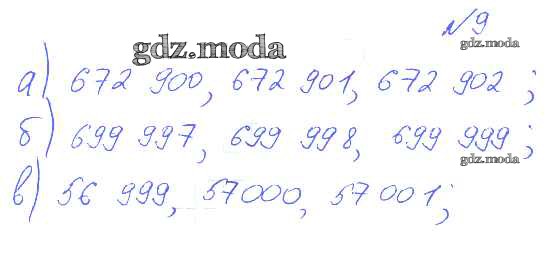 №9
gdz.moda
gdz.moda
а) 672 900, 672 901, 672 902;
б) 699 997, 699 998, 699 999;
gdz.moda
в) 56 999, 57000, 57 001;